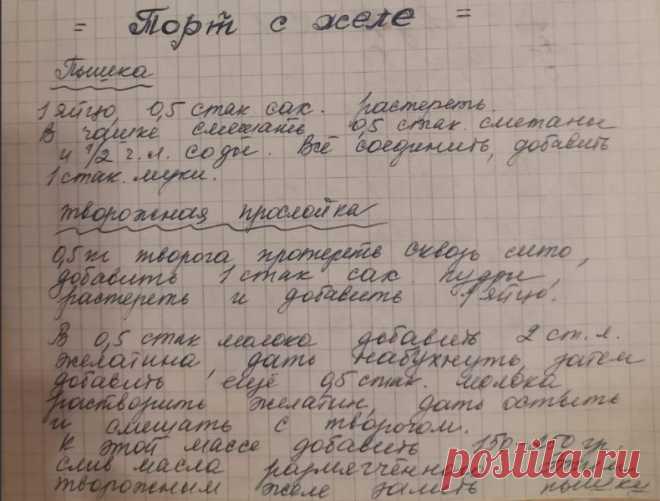 = Торт с желе =
Пышка
1 яйцо, 0,5 стак сах. растереть.
В чашке смешать 0,5 стак. сметаны
и 1/2 ч.л. соды. Всё соединить, добавить
1 стак. муки.
творожная прослойка
0,5 кг творога протереть сквозь сито,
добавить 1 стак сах пудры,
растереть и добавить 1 яйцо.
В 0,5 стак молока добавить 2 ст. л.
желатина, дать набухнуть, затем
добавить ещё 0,5 стак. молока,
растворить желатин, дать остыть
и смешать с творогом.
К этой массе добавить 150 гр.
слив масла размягчённого
творожным желе залить пышку
postila.ru